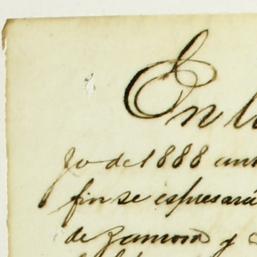 En l
jo de 1888 ant
fin se espresará
de Zamora y